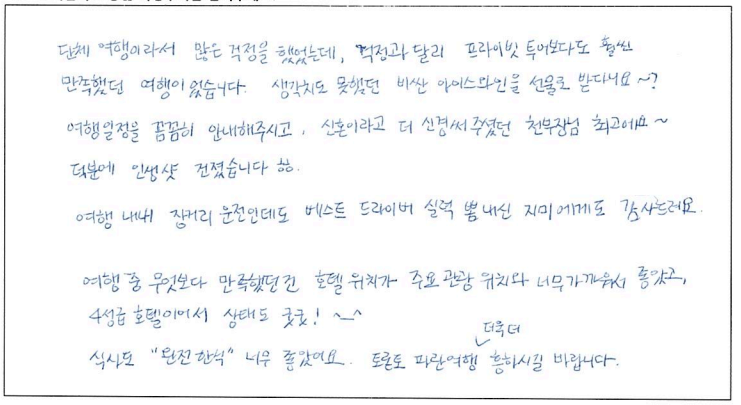 단체 여행이라서 많은 걱정을 했었는데, 걱정과 달리 프라이빗 투어보다도 훨씬
만족했던 여행이었습니다. 생각치도 못했던 비싼 아이스와인을 선물로 받다니요~?
여행일정을 꼼꼼히 안내해주시고, 신혼이라고 더 신경써주셨던 천부장님 최고에요~
덕분에 인생샷 건졌습니다 ㅎㅎ.
여행 내내 장거리 운전인데도 베스트 드라이버 실력 뽐내신 지미에게도 감사드려요.
여행 중 무엇보다 만족했던건 호텔 위치가 주요 관광 위치와 너무가까워서 좋았고,
4성급 호텔이어서 상태도 굿굿! ^_^
더욱더
식사도 "완전한식" 너무 좋았어요. 토론토 파란여행 흥하시길 바랍니다.